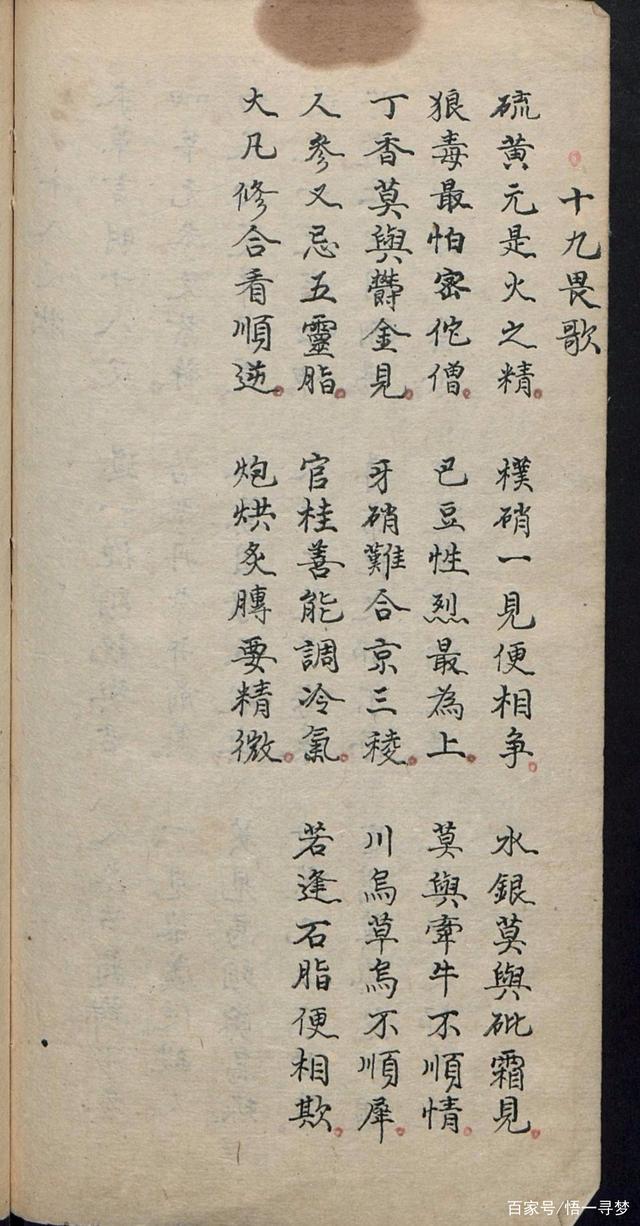 十九畏歌
硫黄元是火之精 樸硝一見便相争 水銀莫與砒霜見
狼毒最怕密佗僧 巴豆性烈最為上 莫與牽牛不順情
丁香莫與欝金見 牙硝難合京三稜 川烏草烏不順犀
人參又忌五靈脂 官桂善能調冷氣 若逢石脂便相欺
大凡修合看順逆 炮烘炙膞要精微
百家号/悟一寻梦